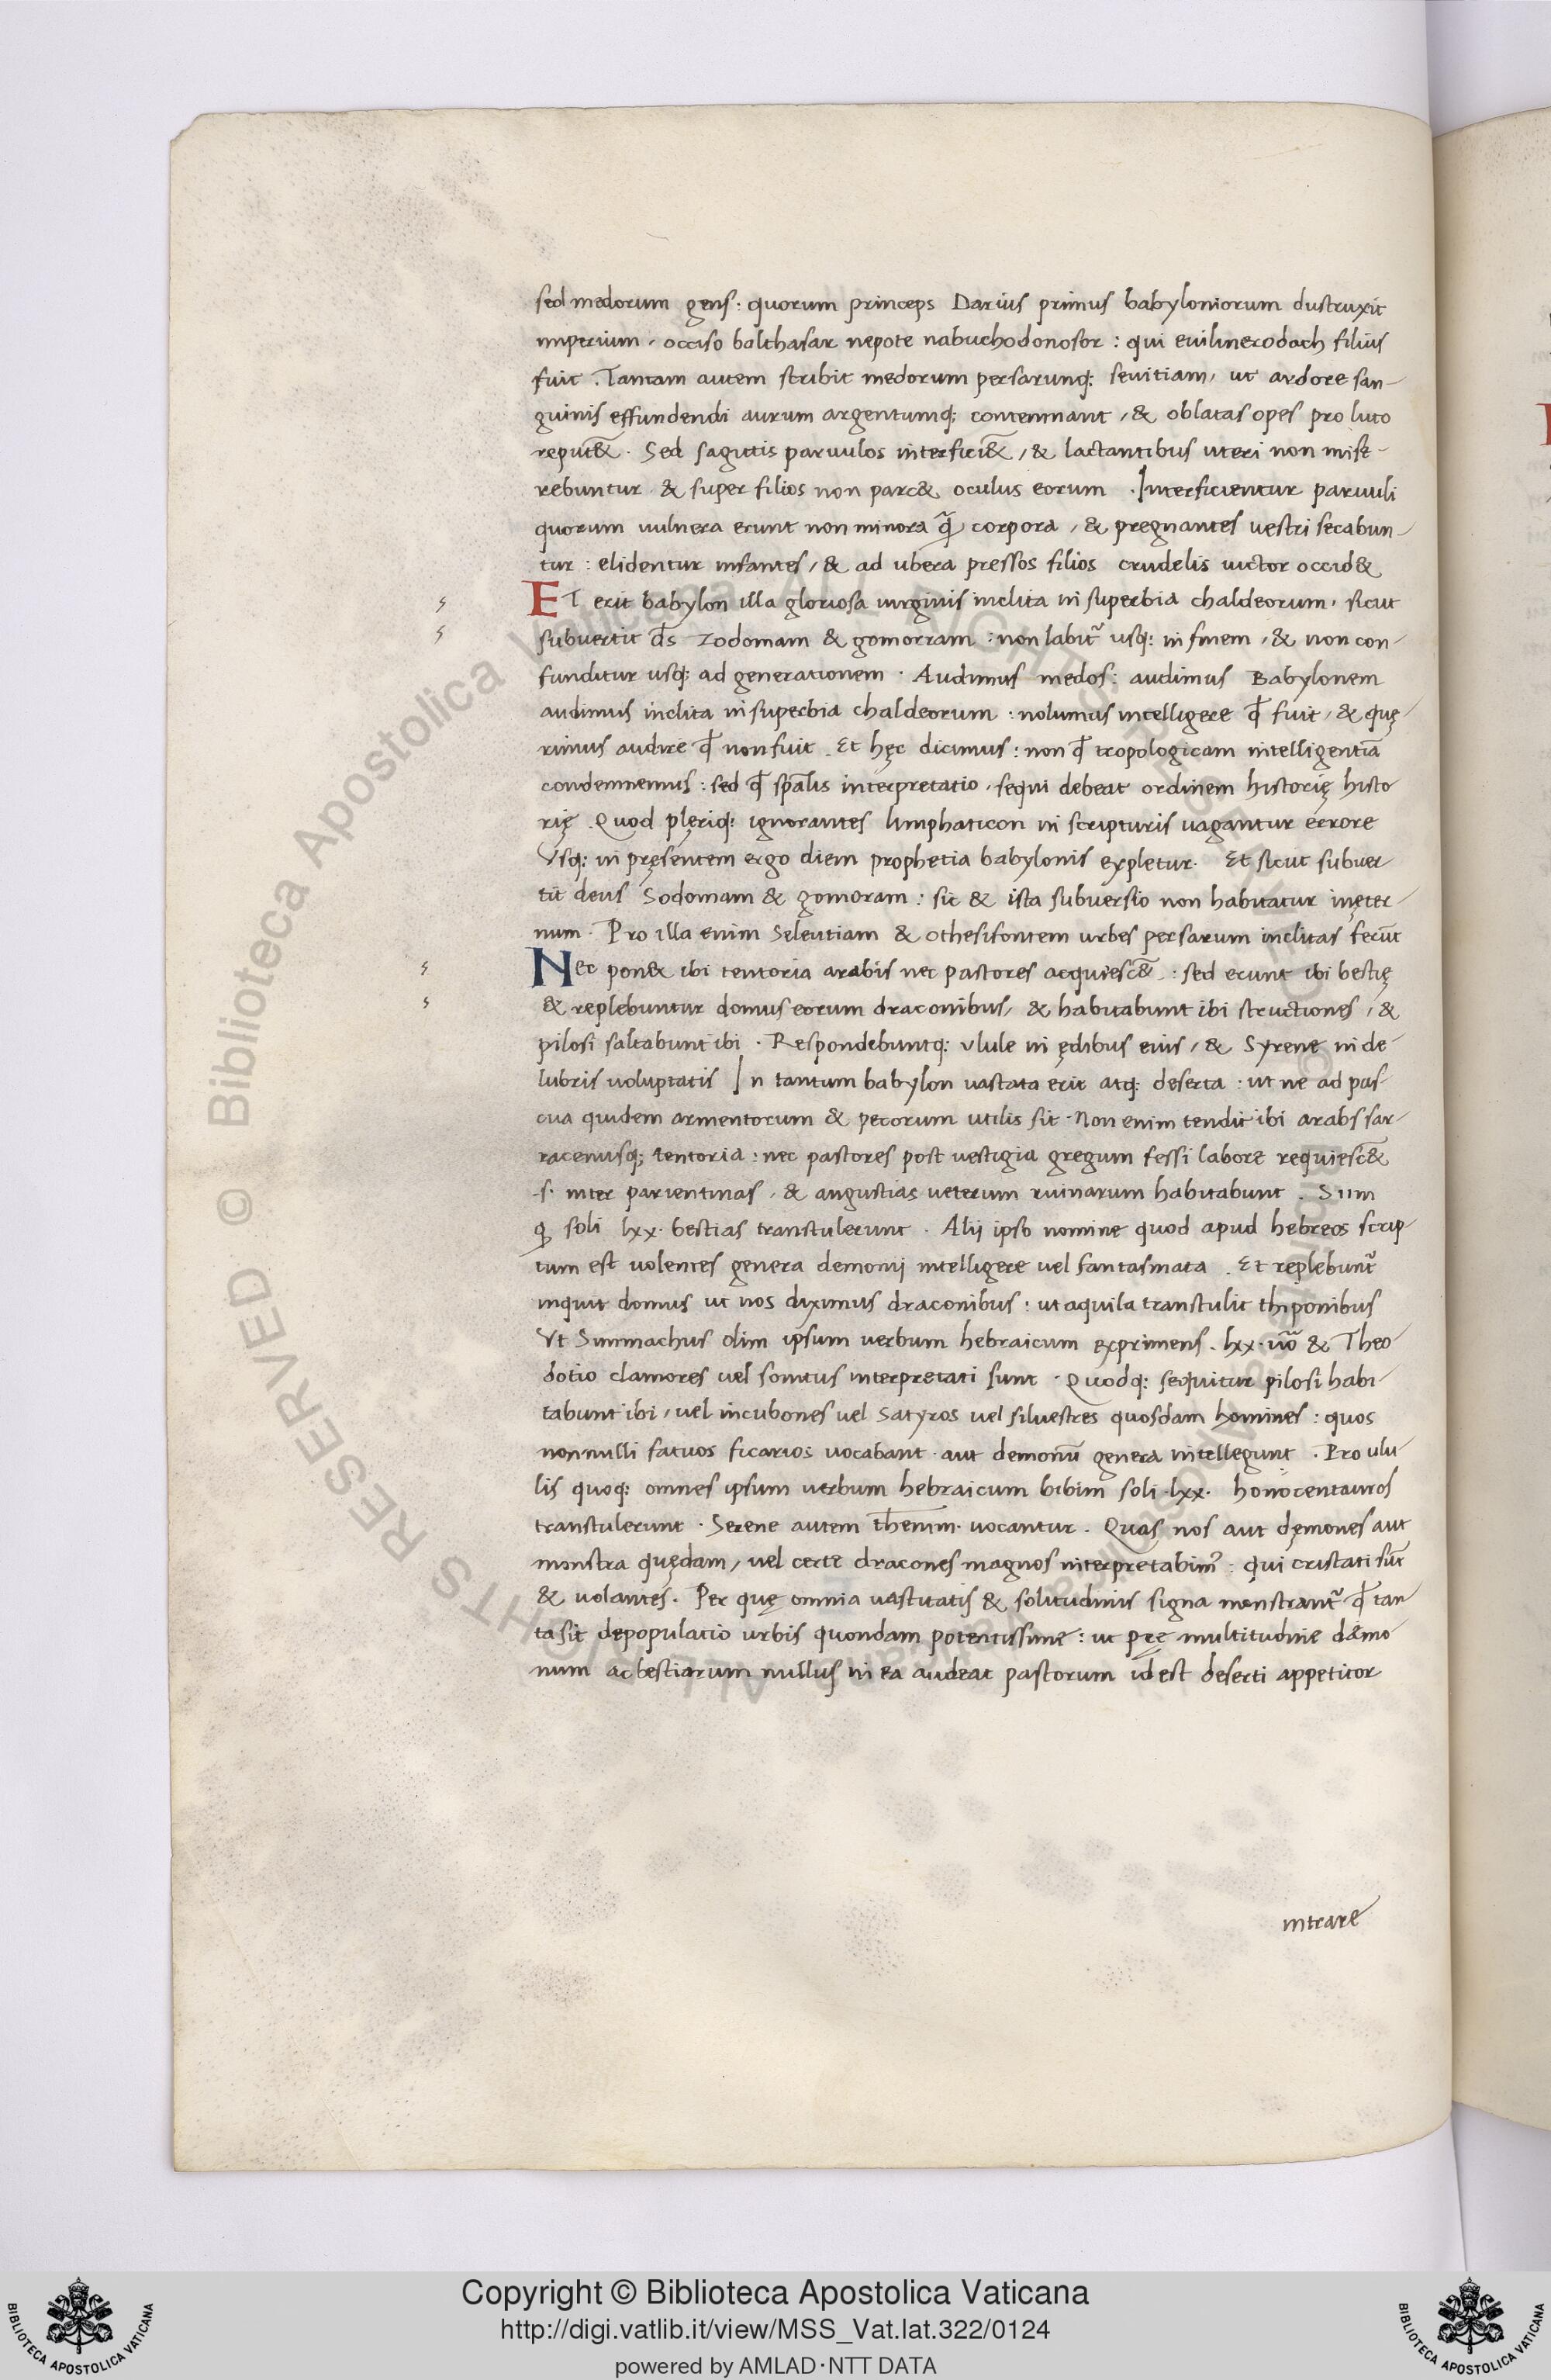 sed medorum gens : quorum princeps Darius primus babyloniorum dustruxit
imperium , occiso balthasar nepote nabuchodonosor : qui euilmerodach filius
fuit . Tantam autem scribit medorum persarunq; seuitiam , ut ardore san-
guinis effundendi aurum argentumq; contemnant , & oblatas opes pro luto
reput&̄ . Sed sagittis paruulos interfici&̄ , & lactantibus uteri non mise-
rebuntur & super filios non parc& oculus eorum . Interficientur paruuli
quorum uulnera erunt non minora q̄ corpora , & pregnantes uestri secabun-
tur : elidentur infantes , & ad ubera pressos filios crudelis uictor occid&
ET erit babylon illa gloriosa uirginis inclita in superbia chaldeorum , sicut
subuertit d̄s zodomam & gomorram : non labit᷑ usq; in finem , & non con-
funditur usq; ad generationem . Audimus medos : audimus Babylonem
audimus inclita in superbia chaldeorum : nolumus intelligere qđ fuit , & quę-
rimus audire qđ non fuit . Et hęc dicimus : non qđ tropologicam intelligentiā
condemnemus : sed qđ sp̄alis interpretatio , sequi debeat ordinem historię histo
rię . Quod plęriq; ignorantes limphaticon in scripturis uagantur errore
Vsq; in pręsentem ergo diem prophetia babylonis expletur . Et sicut subuer
tit deus Sodomam & gomoram : sic & ista subuersio non habitatur inęter-
num . Pro illa enim Seleutiam & othesifontem urbes persarum inclitas fecūt
Nec pon& ibi tentoria arabis nec pastores acquiesc&̄ : sed erunt ibi bestię
& replebuntur domus eorum draconibus , & habitabunt ibi structiones , &
pilosi saltabunt ibi . Respondebuntq; ulule in ędibus eius , & Syrene in de-
lubris uoluptatis In tantum babylon uastata erit atq; deserta : ut ne ad pas-
cua quidem armentorum & pecorum utilis sit . Non enim tendit ibi arabs sar-
racenusq; tentoria : nec pastores post uestigia gregum fessi labore requiesc&̄
.s. inter parientinas , & angustias ueterum ruinarum habitabunt . Siim
ꝙ soli lxx . bestias transtulerunt . Alij ipso nomine quod apud hebreos scrip-
tum est uolentes genera demonij intelligere uel fantasmata . Et replebunt᷑
inquit domus ut nos diximus draconibus : ut aquila transtulit thiponibus
Vt Simmachus olim ipsum uerbum hebraicum exprimens . lxx . uō & Theo-
dotio clamores uel sonitus interpretati sunt . Quodq; sequitur pilosi habi-
tabunt ibi , uel incubones uel satyros uel siluestres quosdam homines : quos
nonnulli fatuos ficarios uocabant . aut demonū genera intellegunt . Pro ulu-
lis quoq; omnes ipsum uerbum hebraicum bibim soli . lxx . honocentauros
transtulerunt . Serene autem thenim . uocantur . Quas nos aut dęmones aut
monstra quędam , uel certe dracones magnos interpretabim᷒ : qui cristati sūt
& uolantes . Per quę omnia uastitatis & solitudinis signa monstrant᷑ qđ tan
ta sit depopulatio urbis quondam potentissime : ut prę multitudine dæmo
num ac bestiarum nullus in ea audeat pastorum id est deserti appetitor
intrare
Copyright © Biblioteca Apostolica Vaticana
http://digi.vatlib.it/view/MSS_Vat.lat.322/0124
powered by AMLAD·NTT DATA
BIBLIOTECA APOSTOLICA VATICANA
BIBLIOTECA APOSTOLICA VATICANA